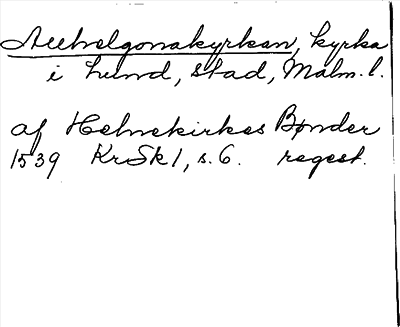 Allhelgonakyrkan, kyrka
i Lund, stad, Malm. l.
af Helnekirkes Bønder
1539 KrSk 1, s. 6. regest.